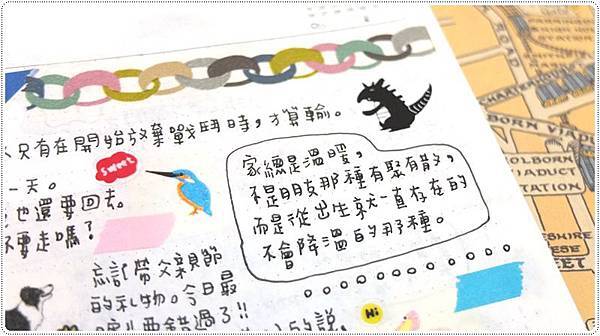 只有在開始放棄戰鬥時，才算輸。
sweet
一天。
也還要回去。
不要走嗎？
家總是溫暖，
不是朋友那種有聚有散，
而是從出生就一直存在的
不會降溫的那種。
忘記帶父親節
的禮物。今日最
西錯過了!!
的說，
Hi
ROAD
CHARTERHOUSE
HOLBORN VIADUCT
HOLBORN
VIADUCT
STATION
CHESHIRE
CHEESE
STREET